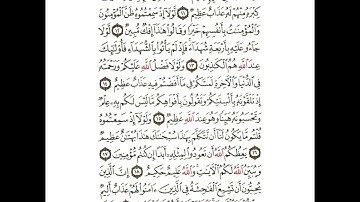 كِبْرَهُۥ مِنْهُمْ لَهُۥ عَذَابٌ عَظِيمٌ ١١ لَّوْلَآ إِذْ سَمِعْتُمُوهُ ظَنَّ ٱلْمُؤْمِنُونَ
وَٱلْمُؤْمِنَٰتُ بِأَنفُسِهِمْ خَيْرًا وَقَالُوا۟ هَٰذَآ إِفْكٌ مُّبِينٌ ١٢ لَّوْلَا
جَآءُو عَلَيْهِ بِأَرْبَعَةِ شُهَدَآءَ فَإِذْ لَمْ يَأْتُوا۟ بِٱلشُّهَدَآءِ فَأُو۟لَٰٓئِكَ
عِندَ ٱللَّهِ هُمُ ٱلْكَٰذِبُونَ ١٣ وَلَوْلَا فَضْلُ ٱللَّهِ عَلَيْكُمْ وَرَحْمَتُهُۥ
فِى ٱلدُّنْيَا وَٱلْءَاخِرَةِ لَمَسَّكُمْ فِى مَآ أَفَضْتُمْ فِيهِ عَذَابٌ عَظِيمٌ ١٤
إِذْ تَلَقَّوْنَهُۥ بِأَلْسِنَتِكُمْ وَتَقُولُونَ بِأَفْوَاهِكُم مَّا لَيْسَ لَكُم بِهِۦ عِلْمٌ
وَتَحْسَبُونَهُۥ هَيِّنًا وَهُوَ عِندَ ٱللَّهِ عَظِيمٌ ١٥ وَلَوْلَآ إِذْ سَمِعْتُمُوهُ
قُلْتُم مَّا يَكُونُ لَنَآ أَن نَّتَكَلَّمَ بِهَٰذَا سُبْحَٰنَكَ هَٰذَا بُهْتَٰنٌ عَظِيمٌ
١٦ يَعِظُكُمُ ٱللَّهُ أَن تَعُودُوا۟ لِمِثْلِهِۦٓ أَبَدًا إِن كُنتُم مُّؤْمِنِينَ ١٧
وَيُبَيِّنُ ٱللَّهُ لَكُمُ ٱلْءَايَٰتِ وَٱللَّهُ عَلِيمٌ حَكِيمٌ ١٨ إِنَّ ٱلَّذِينَ
يُحِبُّونَ أَن تَشِيعَ ٱلْفَٰحِشَةُ فِى ٱلَّذِينَ ءَامَنُوا۟ لَهُمْ عَذَابٌ أَلِيمٌ